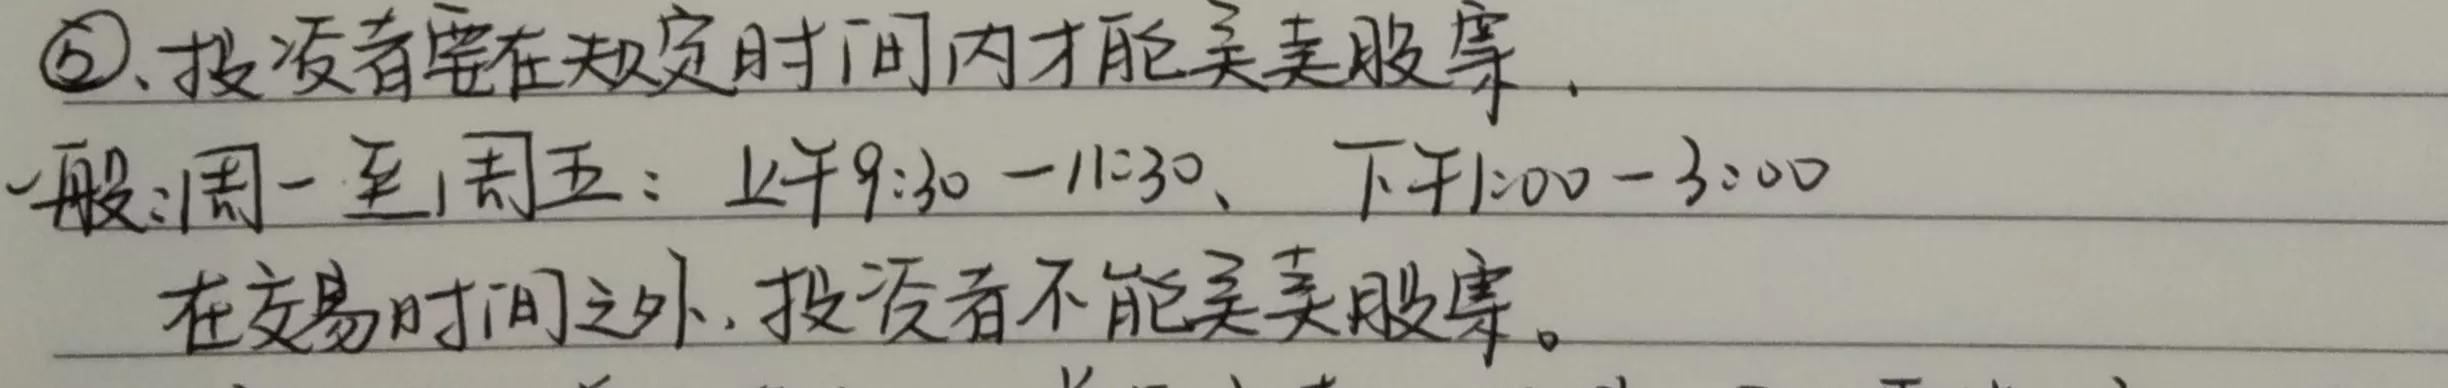 ⑤、投资者要在规定时间内才能买卖股票、
一般:周一至周五: 上午9:30-11:30、 下午1:00-3:00
在交易时间之外,投资者不能买卖股票。